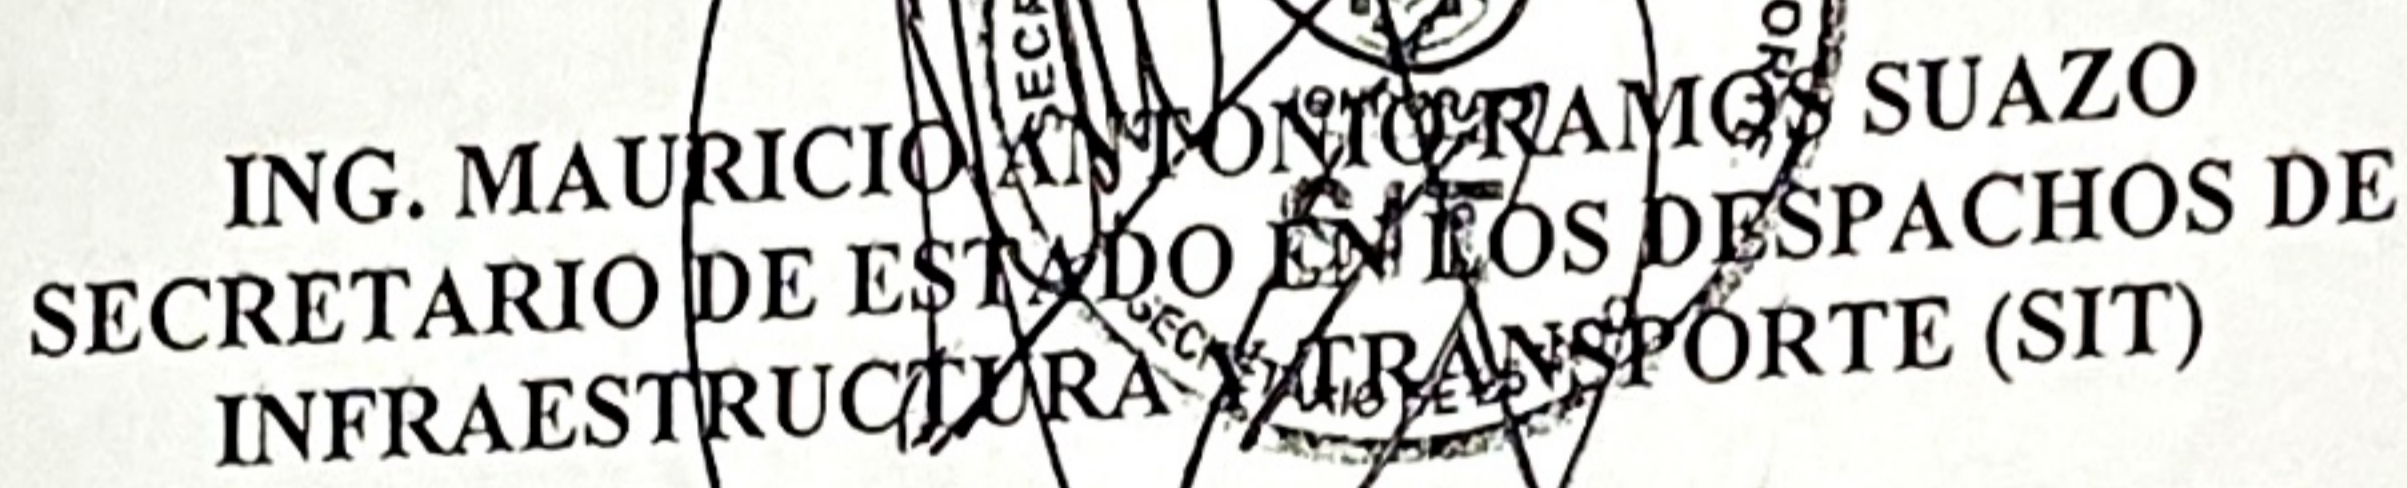 ING. MAURICIO ANTONIO RAMOS SUAZO
SECRETARIO DE ESTADO EN LOS DESPACHOS DE
INFRAESTRUCTURA Y TRANSPORTE (SIT)